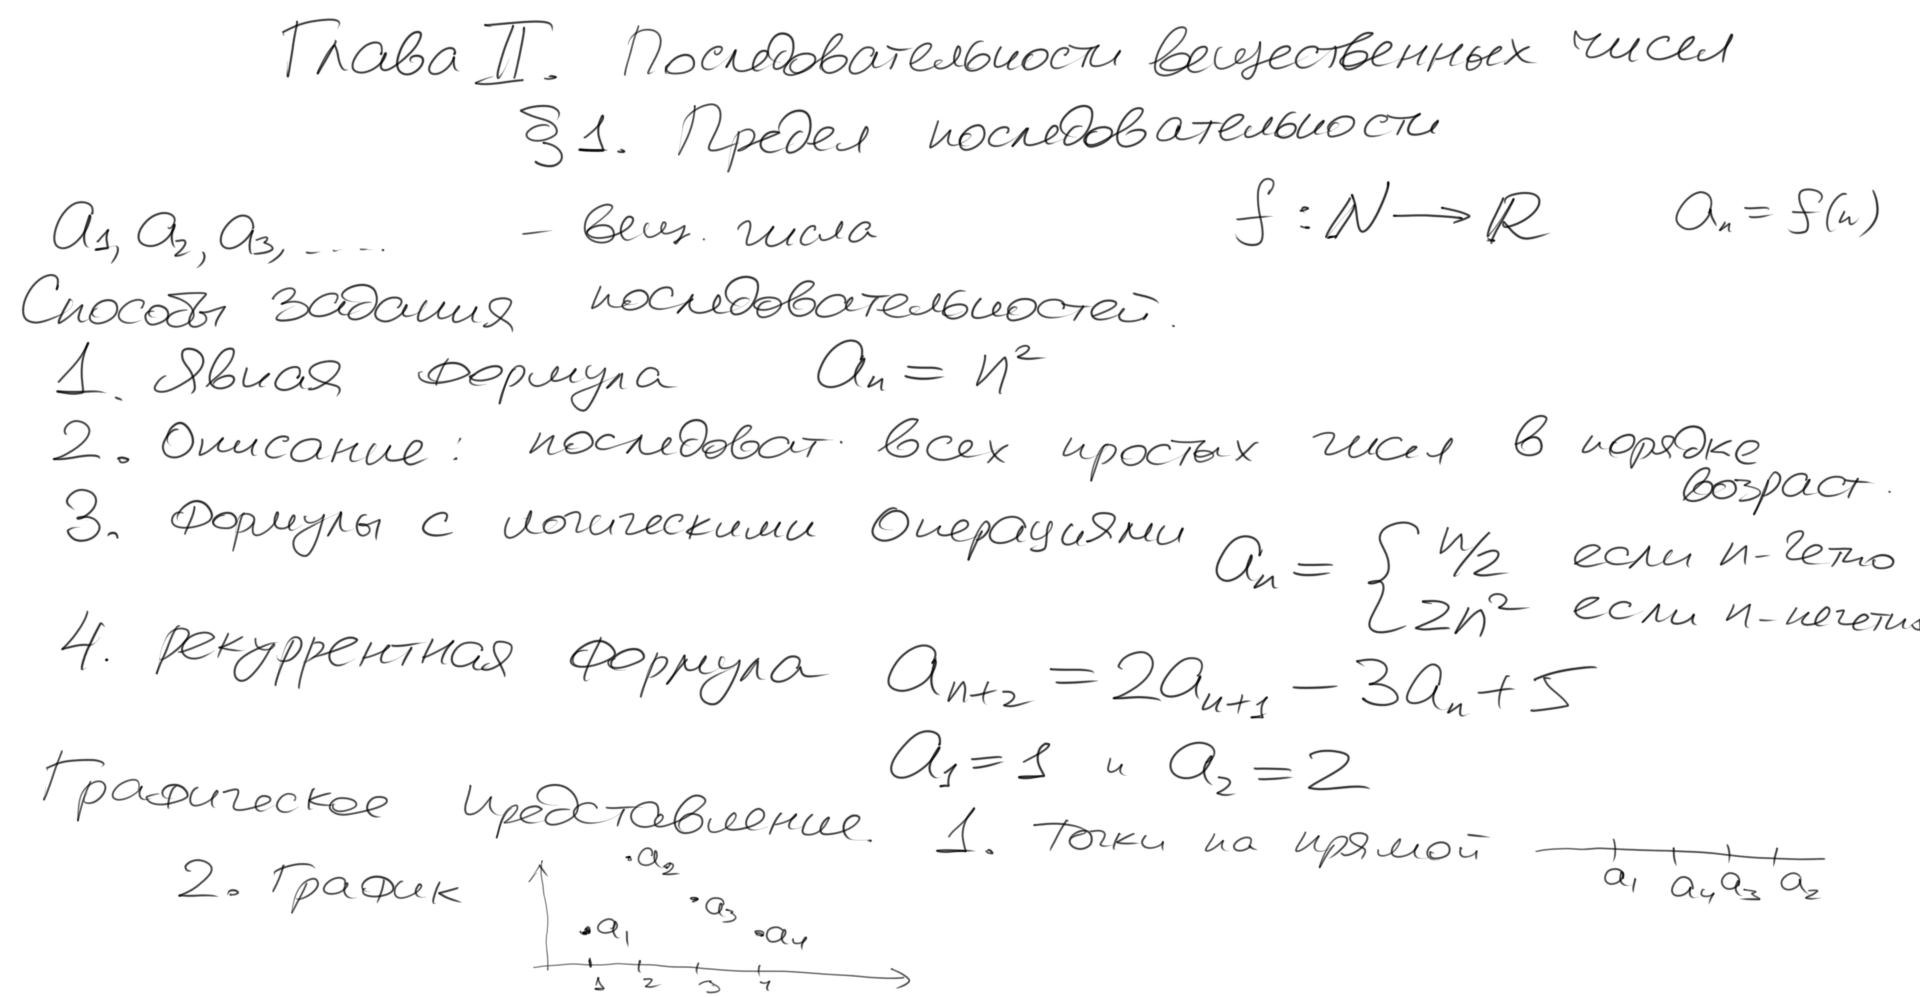 Глава II. Последовательности вещественных чисел
§1. Предел последовательности
a₁, a₂, a₃, ..... – вещ. числа f : ℕ → ℝ aₙ = f(n)
Способы задания последовательностей.
1. Явная формула aₙ = n²
2. Описание: последоват. всех простых чисел в порядке
возраст.
3. Формулы с логическими операциями aₙ = { n/2 если n - четно
2n² если n - нечетно
4. рекуррентная формула aₙ₊₂ = 2aₙ₊₁ – 3aₙ + 5
a₁ = 1 и a₂ = 2
Графическое представление. 1. Точки на прямой
a₁ a₄ a₃ a₂
2. График
a₂
a₃
a₁ a₄
1 2 3 4